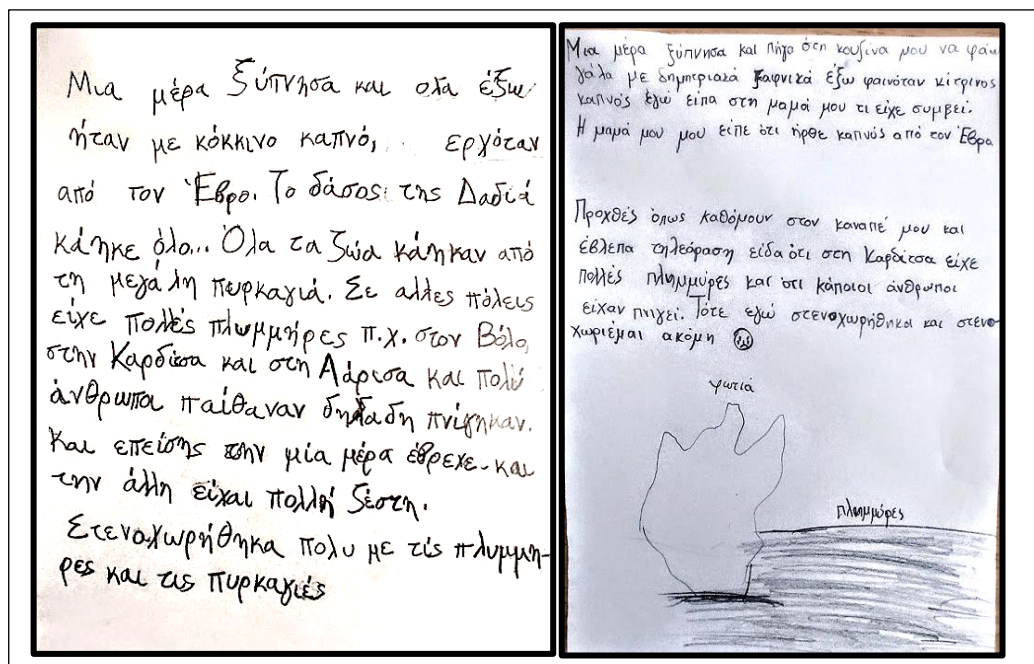 Μια μέρα ξύπνησα και ολα έξω
ήταν με κόκκινο καπνό, εργόταν
από τον Έβρο. Το δάσος της Δαδιά
κάηκε όλο... Όλα τα ζώα κάηκαν από
τη μεγάλη πυρκαγιά. Σε αλλες πόλεις
είχε πολλές πλωμμήρες π.χ. στον Βόλο,
στην Καρδίτσα και στη Λάρισα και πολύ
άνθρωποι παίθαναν δηλαδη πνίγηκαν.
Και επείσης την μία μέρα έβρεχε και
την άλλη είχαι πολλή ζέστη.
Στεναχωρήθηκα πολυ με τις πλυμμη-
ρες και τις πυρκαγιές
Μια μέρα ξύπνησα και πήγα στη κουζίνα μου να φάω
γάλα με δημητριακά ξαφνικά έξω φαινόταν κίτρινος
καπνός εγώ είπα στη μαμά μου τι είχε συμβεί.
Η μαμά μου μου είπε ότι ήρθε καπνός από τον Έβρο
Προχθές όπως καθόμουν στον καναπέ μου και
έβλεπα τηλεόραση είδα ότι στη Καρδίτσα είχε
πολλές πλημμύρες και ότι κάποιοι άνθρωποι
είχαν πνιγεί. Τότε εγώ στενοχωρήθηκα και στενο
χωριέμαι ακόμη
φωτιά
πλημμύρες